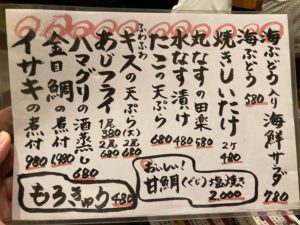 海ぶどう入り海鮮サラダ 780
海ぶどう 580
焼きしいたけ 2ケ 480
丸なすの田楽 580
水なす漬け 480
たこの天ぷら 680
ふわふわ
キスの天ぷら(大) 2尾 680
あじフライ 1尾 380 2尾 680
ハマグリの酒蒸し 680
金目鯛の煮付 1,980
イサキの煮付 980
もろきゅう 480
おいしい！
甘鯛(ぐじ)塩焼き 2,000